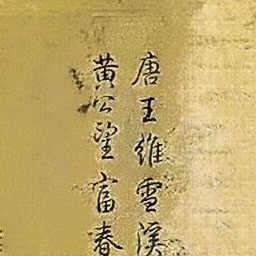 唐王維雪溪
黃公望富春